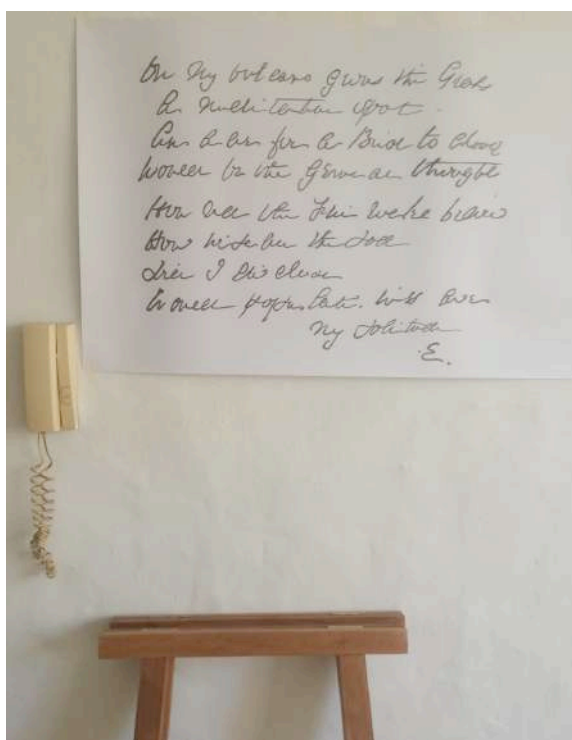 On my volcano grows the Grass
A meditative spot
An acre for a Bird to choose
Would be the General thought
How red the Fire rocks below
How insecure the sod
Did I disclose
Would populate with awe
my solitude
E.